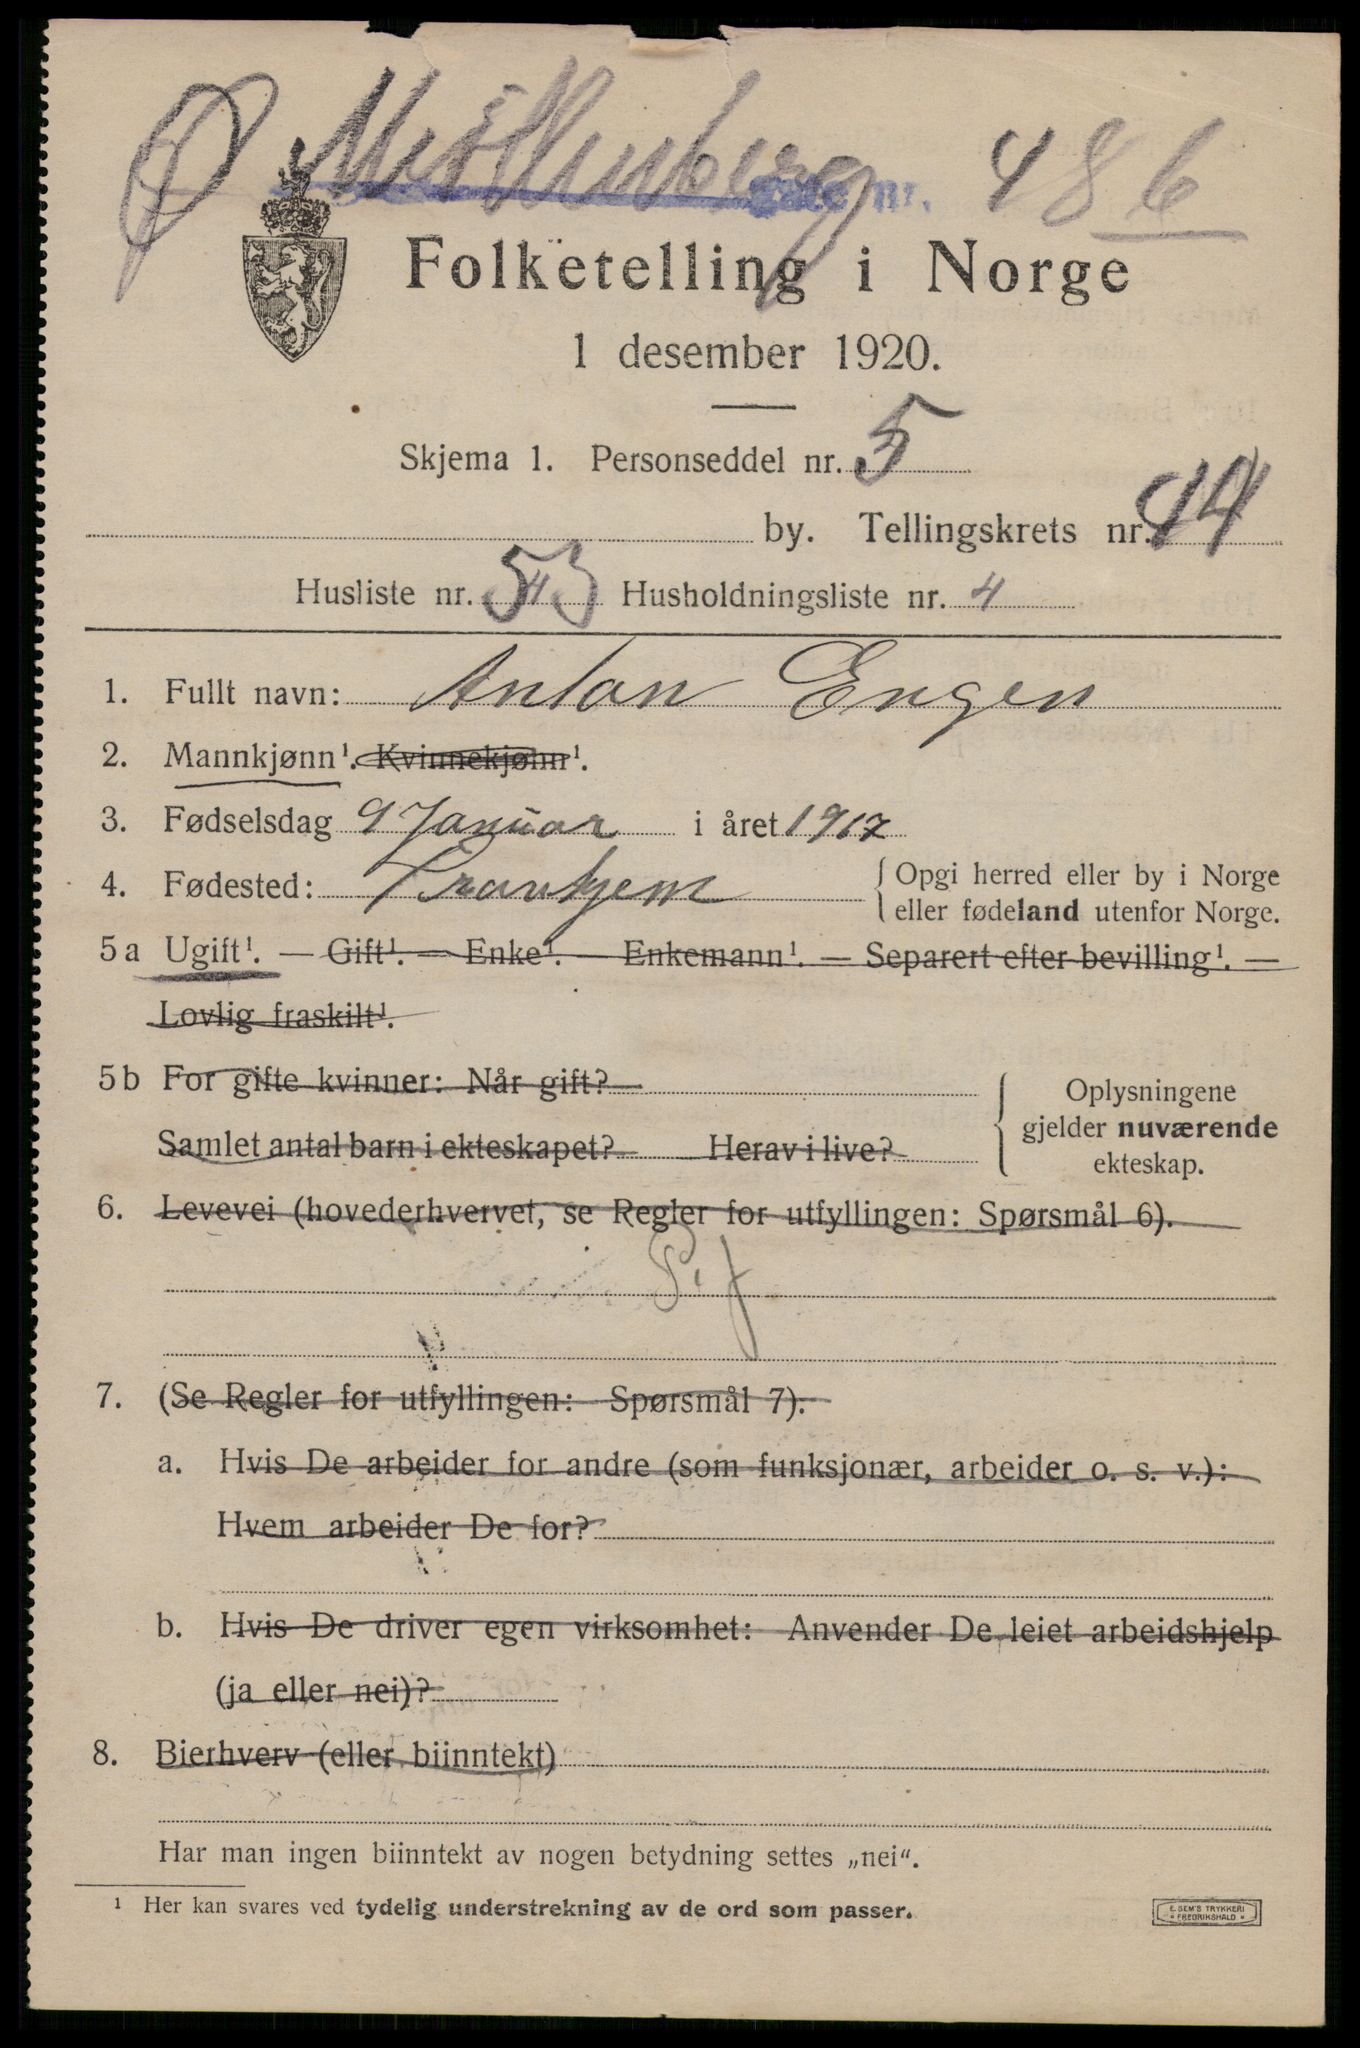 Ø Möllenberg gate nr. 48 b
Folketelling i Norge
1 desember 1920.
Skjema 1. Personseddel nr. 5
by. Tellingskrets nr. 14
Husliste nr. 53 Husholdningsliste nr. 4
1. Fullt navn: Anton Engen
2. Mannkjønn¹. Kvinnekjønn¹.
3. Fødselsdag 9 Januar i året 1917
4. Fødested: Trontjem { Opgi herred eller by i Norge
eller fødeland utenfor Norge.
5 a Ugift¹. — Gift¹. — Enke¹. — Enkemann¹. — Separert efter bevilling¹. —
Lovlig fraskilt¹.
5 b For gifte kvinner: Når gift?
Samlet antal barn i ekteskapet? Herav i live?
Oplysningene
gjelder nuværende
ekteskap.
6. Levevei (hovederhvervet, se Regler for utfyllingen: Spørsmål 6).
7. (Se Regler for utfyllingen: Spørsmål 7).
a. Hvis De arbeider for andre (som funksjonær, arbeider o. s. v.):
Hvem arbeider De for?
b. Hvis De driver egen virksomhet: Anvender De leiet arbeidshjelp
(ja eller nei)?
8. Bierhverv (eller biinntekt)
Har man ingen biinntekt av nogen betydning settes „nei".
¹ Her kan svares ved tydelig understrekning av de ord som passer.
E. SEM'S TRYKKERI
FREDRIKSHALD